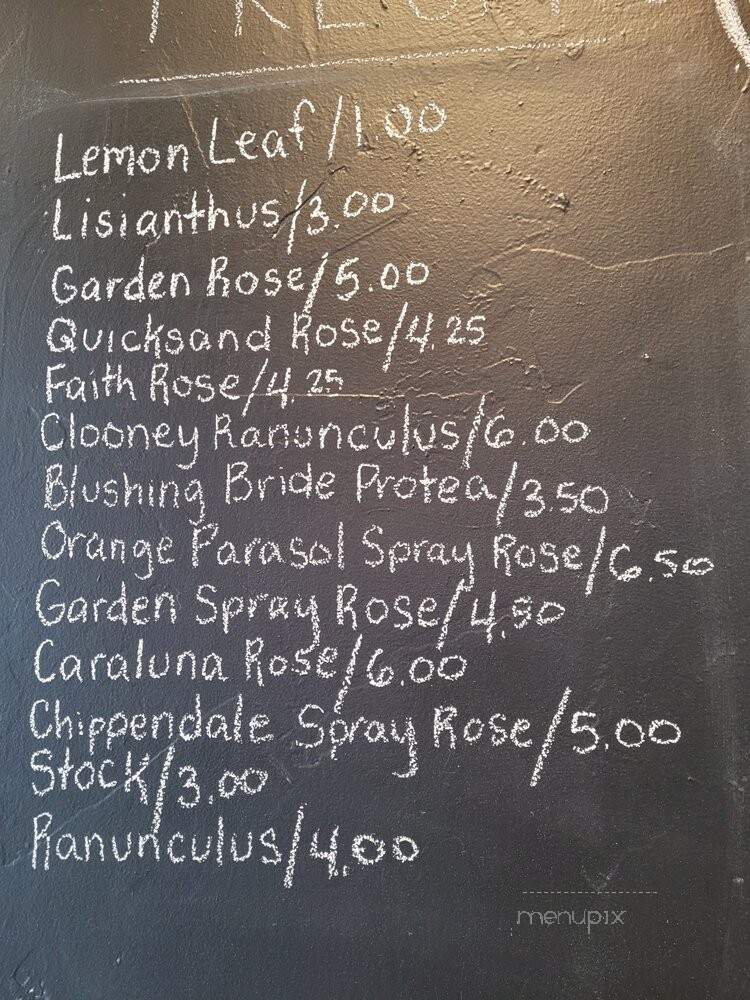 Lemon Leaf/1.00
Lisianthus/3.00
Garden Rose/5.00
Quicksand Rose/4.25
Faith Rose/4.25
Clooney Ranunculus/6.00
Blushing Bride Protea/3.50
Orange Parasol Spray Rose/6.50
Garden Spray Rose/4.50
Caraluna Rose/6.00
Chippendale Spray Rose/5.00
Stock/3.00
Ranunculus/4.00
menupix